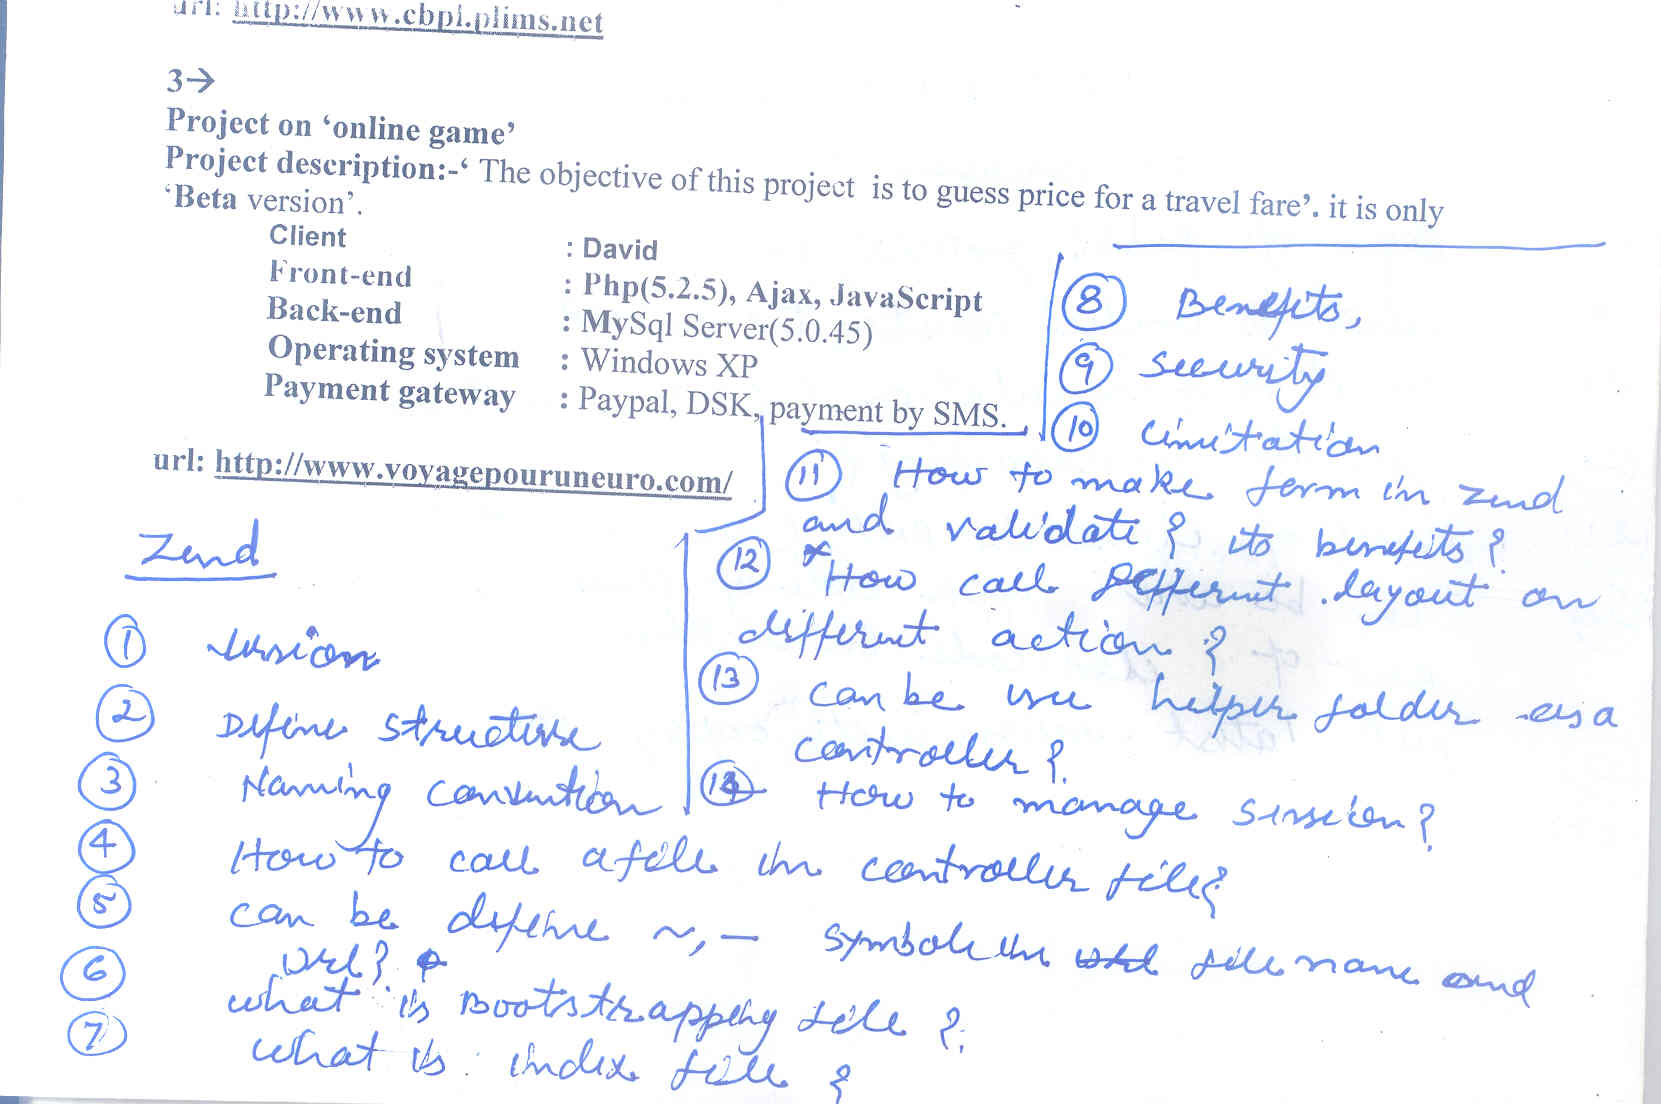 url: http://www.cbpl.plims.net
3→
Project on ‘online game’
Project description:-‘ The objective of this project is to guess price for a travel fare’. it is only
‘Beta version’.
Client : David
Front-end : Php(5.2.5), Ajax, JavaScript
Back-end : MySql Server(5.0.45)
Operating system : Windows XP
Payment gateway : Paypal, DSK, payment by SMS.
url: http://www.voyagepouruneuro.com/
Zend
1 version
2 Define structure
3 Naming convention
4 How to call a file in controller file?
5 can be define ~, — symbole in file name and
url?
6 what is Bootstrapping file ?
7 what is index file ?
8 Benefits,
9 security
10 Limitation
11 How to make form in zend
and validate ? its benefits ?
12 *How call different layout on
different action ?
13 can be use helper folder as a
controller ?
14 How to manage session ?